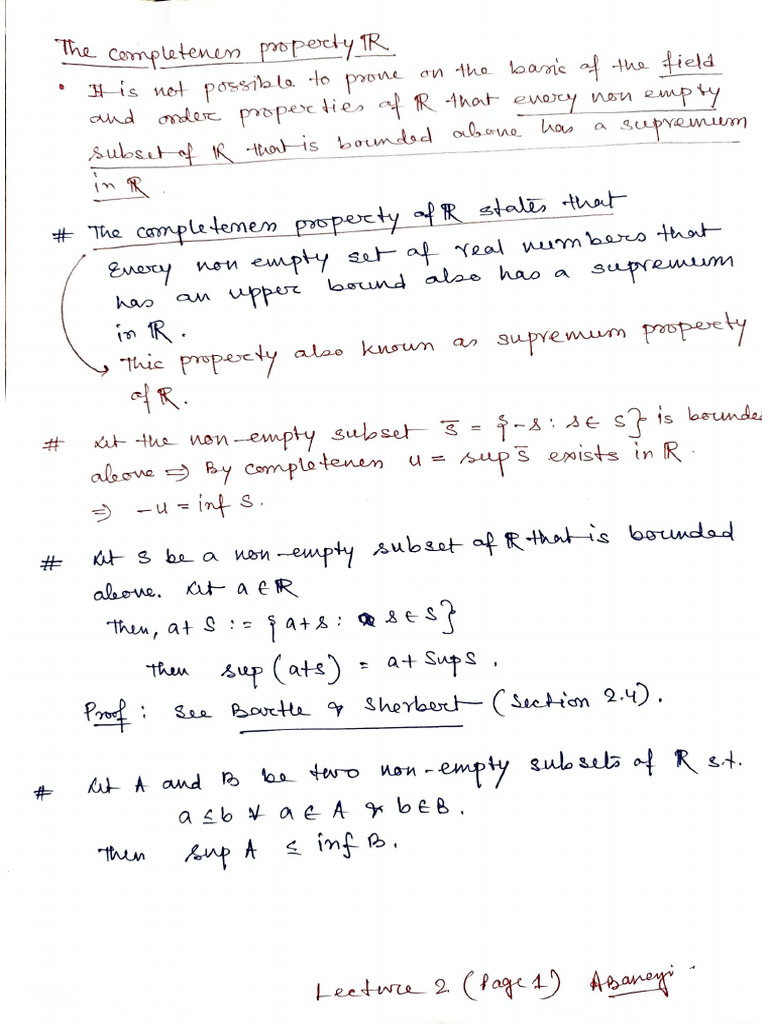 The completeness property ℝ
• It is not possible to prove on the basic of the field
and order properties of ℝ that every non empty
subset of ℝ that is bounded above has a supremum
in ℝ.
# The completeness property of ℝ states that
Every non empty set of real numbers that
has an upper bound also has a supremum
in ℝ.
This property also known as supremum property
of ℝ.
# Let the non-empty subset S̄ = {-s : s ∈ S} is bounded
above ⇒ By completeness u = sup S̄ exists in ℝ.
⇒ -u = inf S.
# Let S be a non-empty subset of ℝ that is bounded
above. Let a ∈ ℝ
Then, a+S := {a+s : s ∈ S}
Then sup (a+s) = a + Sup S.
Proof : See Bartle & Sherbert (Section 2.4).
# Let A and B be two non-empty subsets of ℝ s.t.
a ≤ b ∀ a ∈ A & b ∈ B.
Then sup A ≤ inf B.
Lecture 2 (Page 1) ABanerji